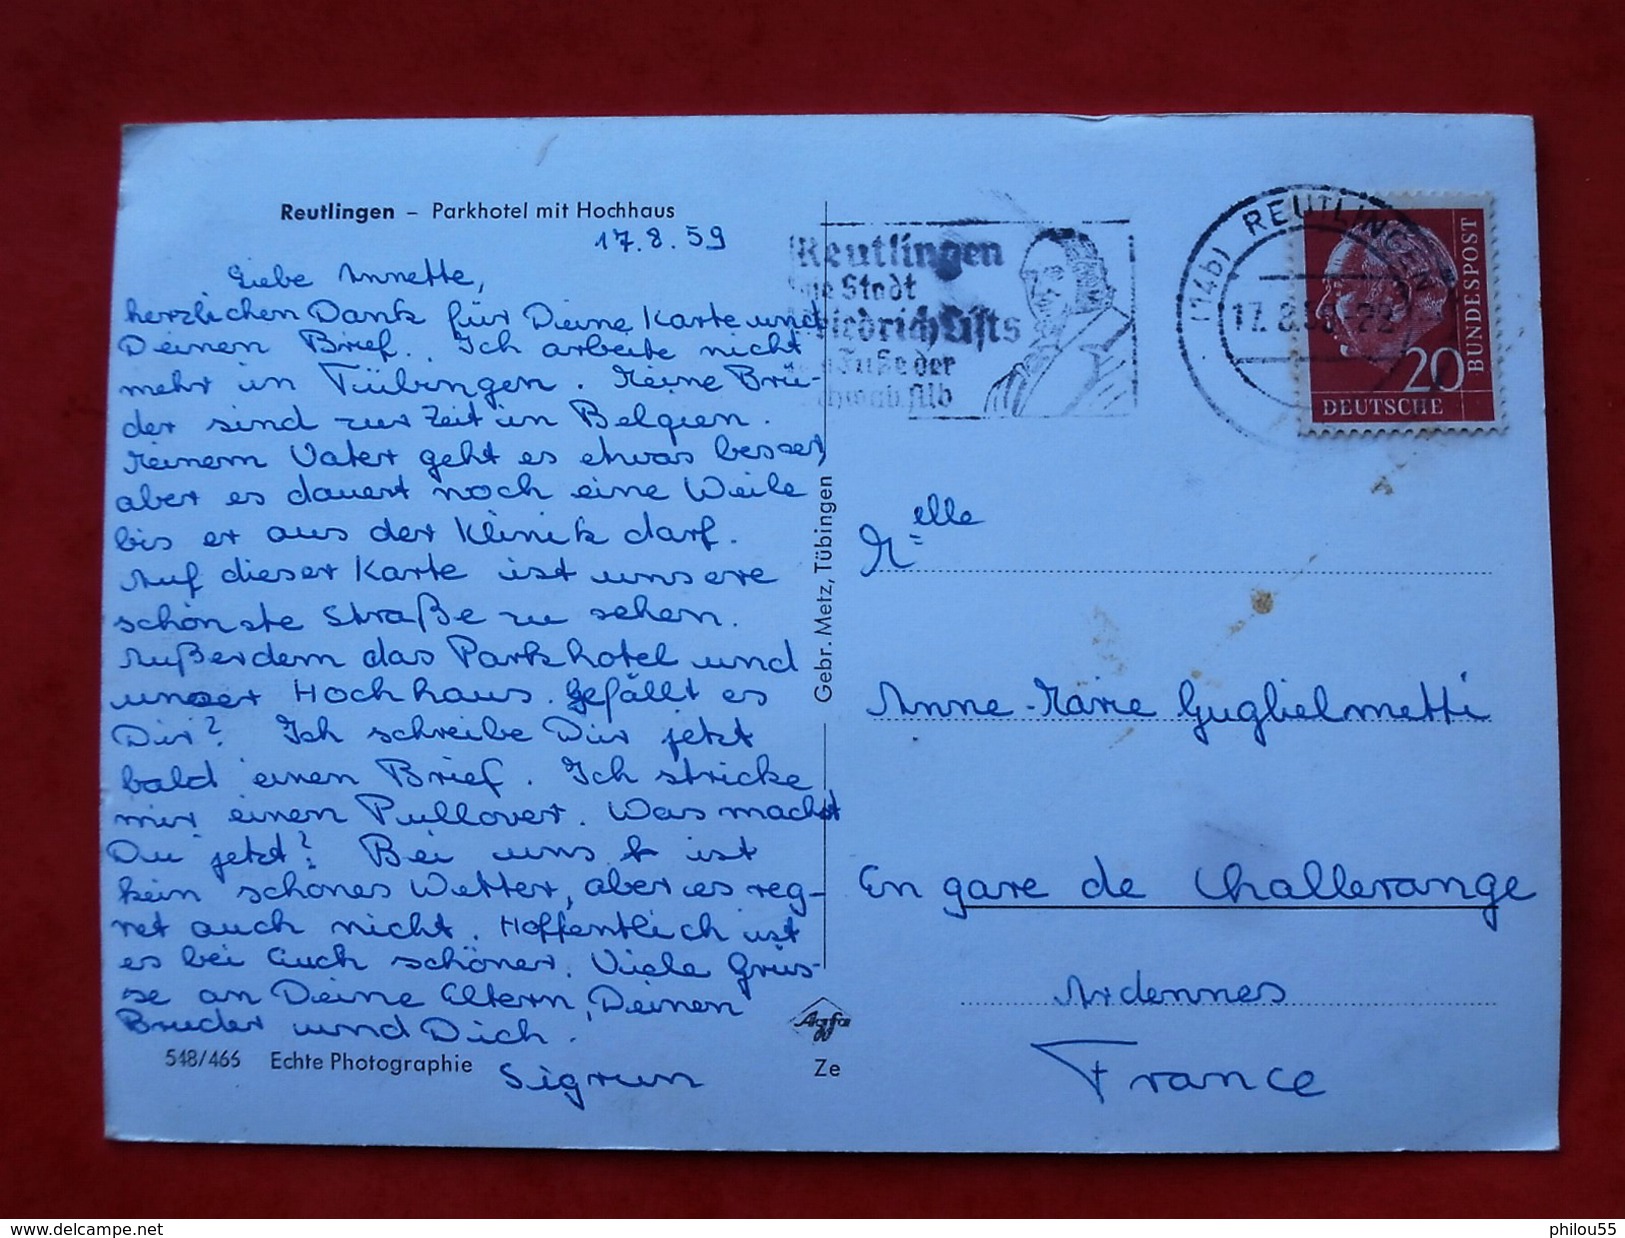 Reutlingen – Parkhotel mit Hochhaus
17.8.59
Liebe Annette,
herzlichen Dank für Deine Karte und
Deinen Brief. Ich arbeite nicht
mehr in Tübingen. Meine Brü-
der sind zur Zeit in Belgien.
Meinem Vater geht es etwas besser,
aber es dauert noch eine Weile
bis er aus der Klinik darf.
Auf dieser Karte ist unsere
schönste Straße zu sehen.
Außerdem das Parkhotel und
unser Hochhaus. Gefällt es
Dir? Ich schreibe Dir jetzt
bald einen Brief. Ich stricke
mir einen Pullover. Was machst
Du jetzt? Bei uns ist
kein schönes Wetter, aber es reg-
net auch nicht. Hoffentlich ist
es bei Euch schöner. Viele Grüs-
se an Deine Eltern, Deinen
Bruder und Dich.
Sigrun
548/466 Echte Photographie
Gebr. Metz, Tübingen
Agfa
Ze
Reutlingen
Stadt
Friedrich Lists
Fuße der
Schwäb. Alb
(14b) REUTLINGEN
17.8.59-22
DEUTSCHE
BUNDESPOST
20
Melle
Anne-Marie Guglielmetti
En gare de Challerange
Ardennes
France
www.delcampe.net
philou55